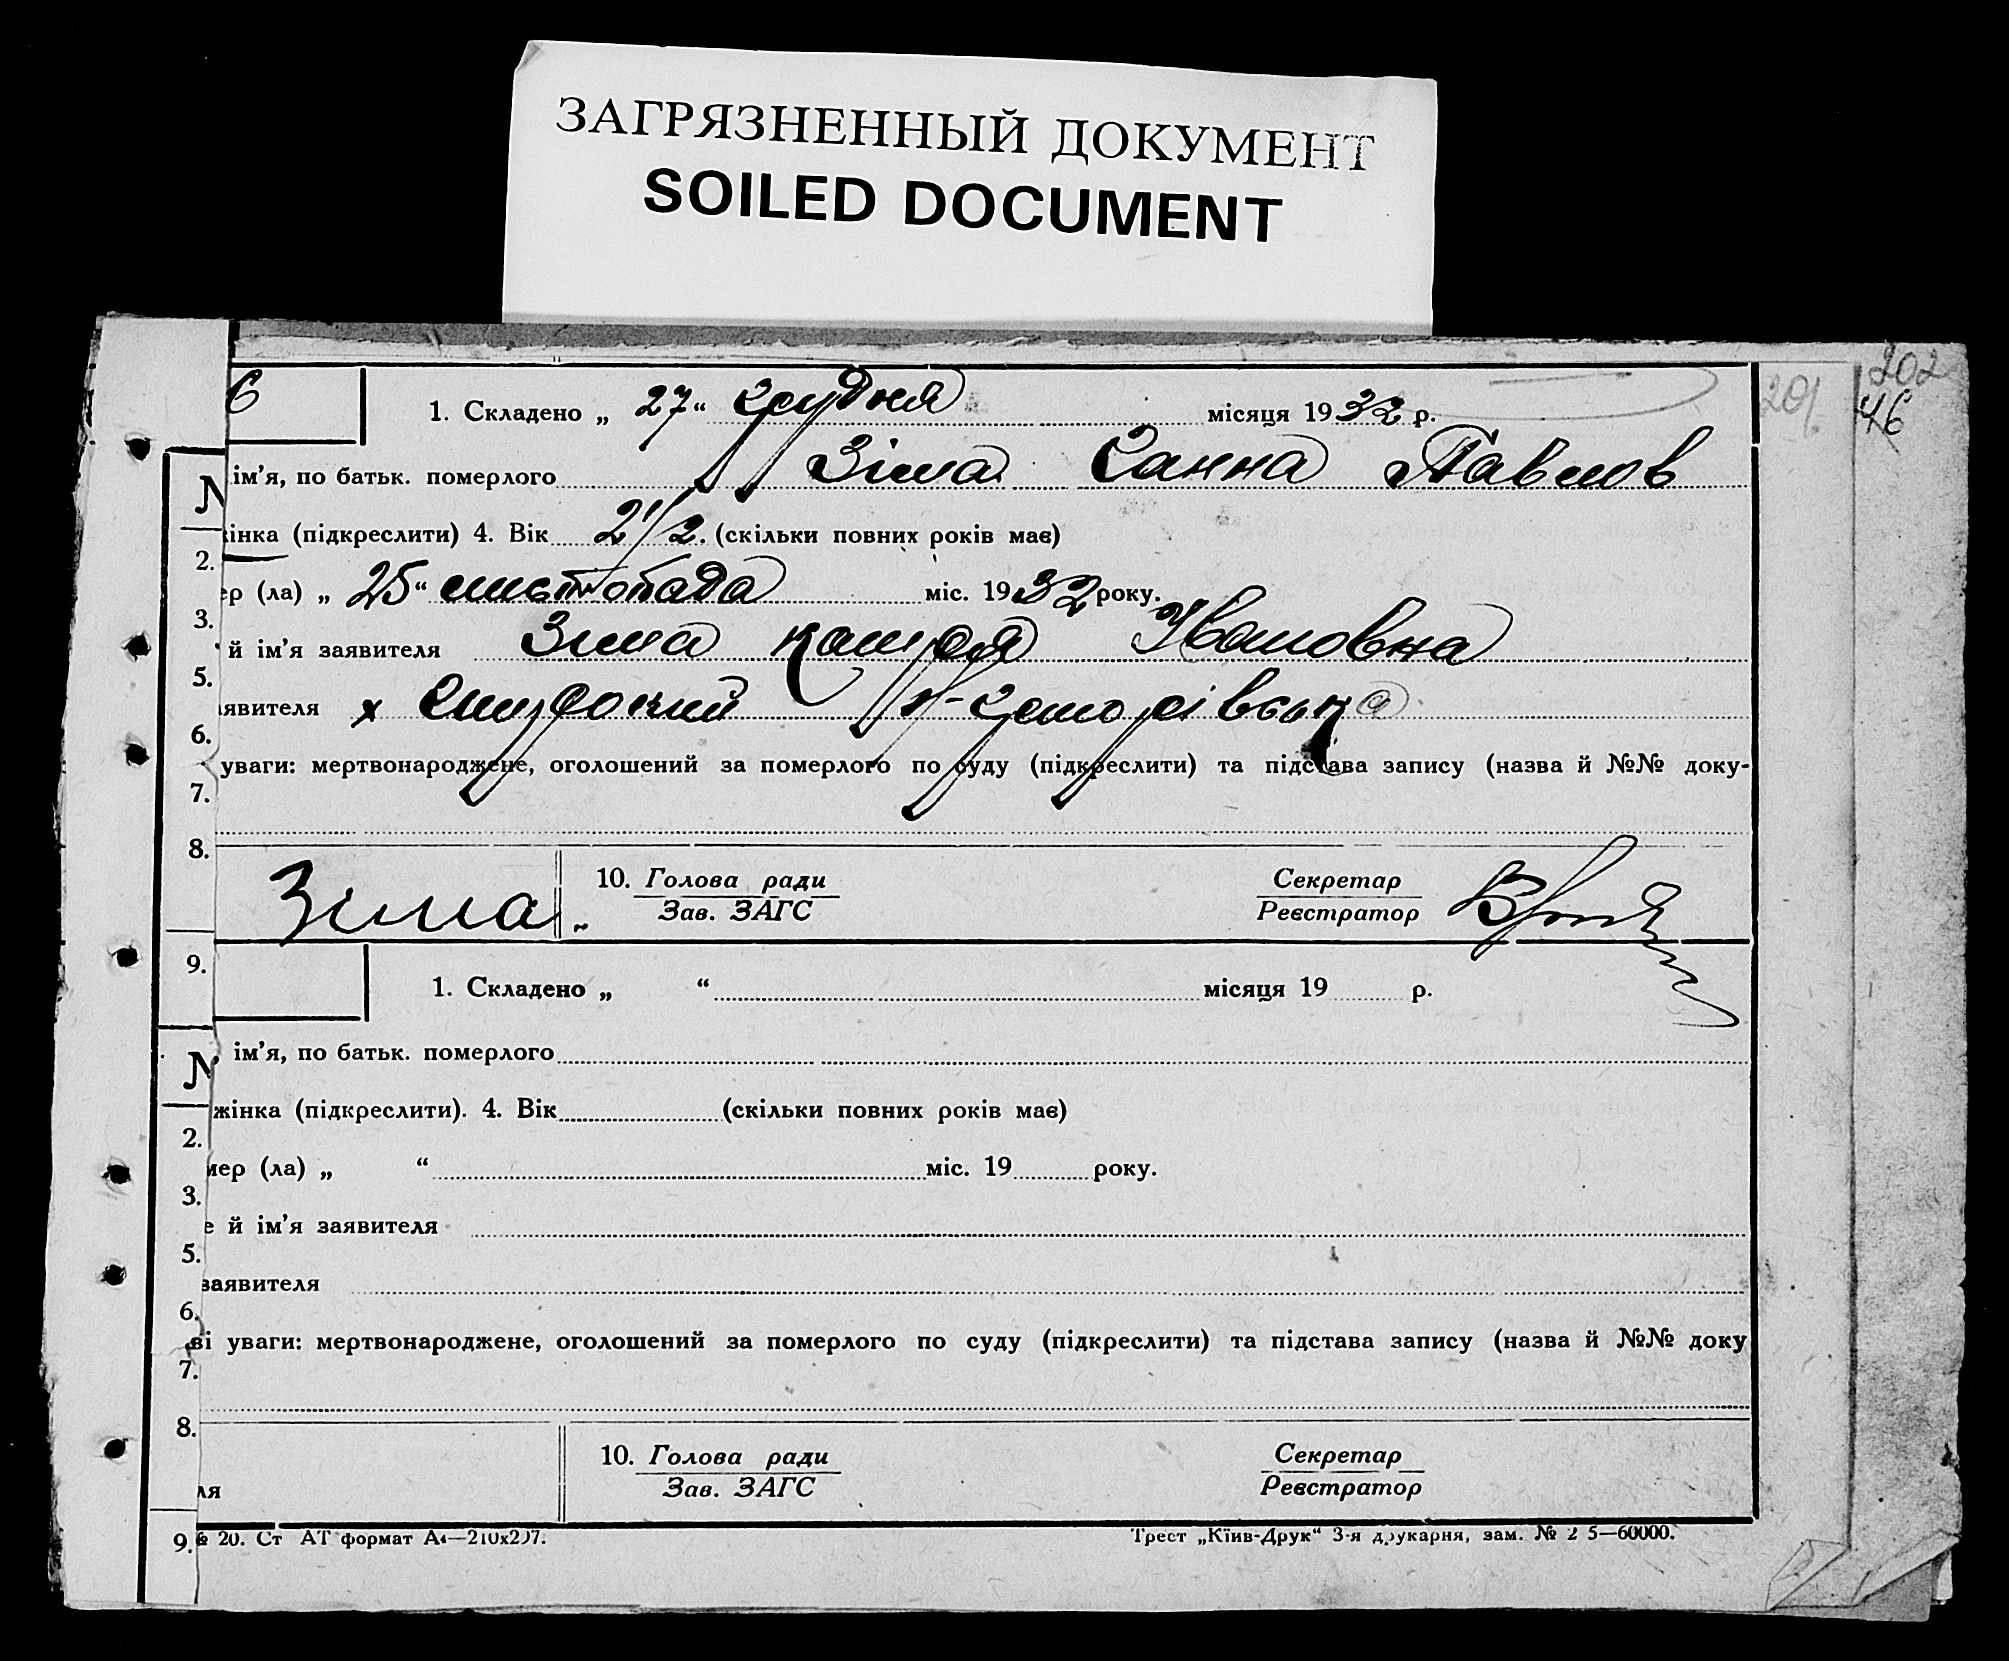 ЗАГРЯЗНЕННЫЙ ДОКУМЕНТ
SOILED DOCUMENT
202
201
46
6
1. Складено „ 27 “ грудня місяця 1932 р.
ім’я, по батьк. померлого Зіма Ганна Павлов
N
інка (підкреслити) 4. Вік 2 1/2. (скільки повних років має)
2.
ер (ла) „ 25 “ листопада міс. 1932 року.
3.
й ім’я заявителя Зіма Ивановна
5.
явителя х
6.
уваги: мертвонароджене, оголошений за померлого по суду (підкреслити) та підстава запису (назва й №№ доку-
7.
8.
Зима. 10. Голова ради Секретар
Зав. ЗАГС Реєстратор
9.
1. Складено „ “ місяця 19 р.
ім’я, по батьк. померлого
N
жінка (підкреслити). 4. Вік (скільки повних років має)
2.
мер (ла) „ “ міс. 19 року.
3.
е й ім’я заявителя
5.
заявителя
6.
ві уваги: мертвонароджене, оголошений за померлого по суду (підкреслити) та підстава запису (назва й №№ доку
7.
8.
10. Голова ради Секретар
Зав. ЗАГС Реєстратор
ля
9.
№ 20. Ст АТ формат А4—210х297. Трест „Київ-Друк“ 3-я друкарня, зам. № 2 5—60000.